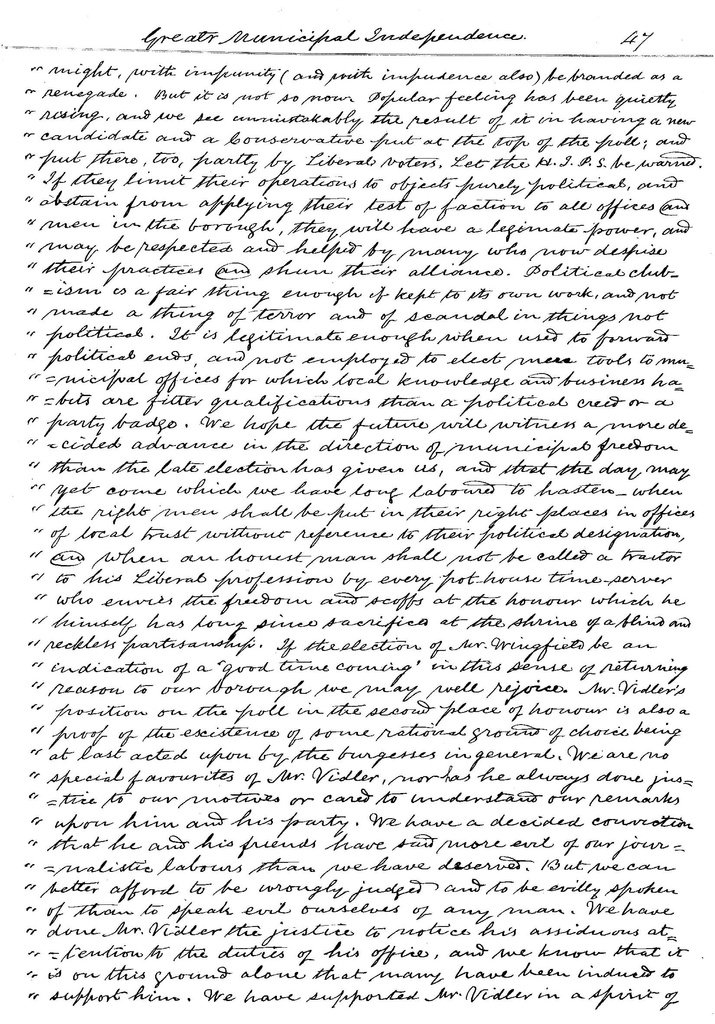 Greater Municipal Independence. 47
" might, with impunity (and with impudence also) be branded as a
" renegade. But it is not so now. Popular feeling has been quietly
" rising, and we see unmistakably the result of it in having a new
" candidate and a Conservative put at the top of the poll; and
" put there, too, partly by Liberal voters. Let the H.I.P.S. be warned.
" If they limit their operations to objects purely political, and
" abstain from applying their test of faction to all offices and
" men in the borough, they will have a legimate power, and
" may be respected and helped by many who now despise
" their practices and shun their alliance. Political club=
" =ism is a fair thing enough if kept to its own work, and not
" made a thing of terror and of scandal in things not
" political. It is legitimate enough when used to forward
" political ends, and not employed to elect mere tools to mu=
" =nicipal offices for which local knowledge and business ha=
" =bits are fitter qualifications than a political creed or a
" party badge. We hope the future will witness a more de=
" =cided advance in the direction of municipal freedom
" than the late election has given us, and that the day may
" yet come which we have long laboured to hasten – when
" the right men shall be put in their right places in offices
" of local trust without reference to their political designation,
" and when an honest man shall not be called a traitor
" to his Liberal profession by every pot-house time-server
" who envies the freedom and scoffs at the honour which he
" himself has long since sacrificed at the shrine of a blind and
" reckless partisanship. If the election of Mr. Wingfield be an
" indication of a 'good time coming' in this sense of returning
" reason to our borough we may well rejoice. Mr. Vidler's
" position on the poll in the second place of honour is also a
" proof of the existence of some rational ground of choice being
" at last acted upon by the burgesses in general. We are no
" special favourites of Mr. Vidler, nor has he always done jus=
" =tice to our motives or cared to understand our remarks
" upon him and his party. We have a decided conviction
" that he and his friends have said more evil of our jour=
" =nalistic labours than we have deserved. But we can
" better afford to be wrongly judged and to be evilly spoken
" of than to speak evil ourselves of any man. We have
" done Mr. Vidler the justice to notice his assiduous at=
" =tention to the duties of his office, and we know that it
" is on this ground alone that many have been induced to
" support him. We have supported Mr. Vidler in a spirit of